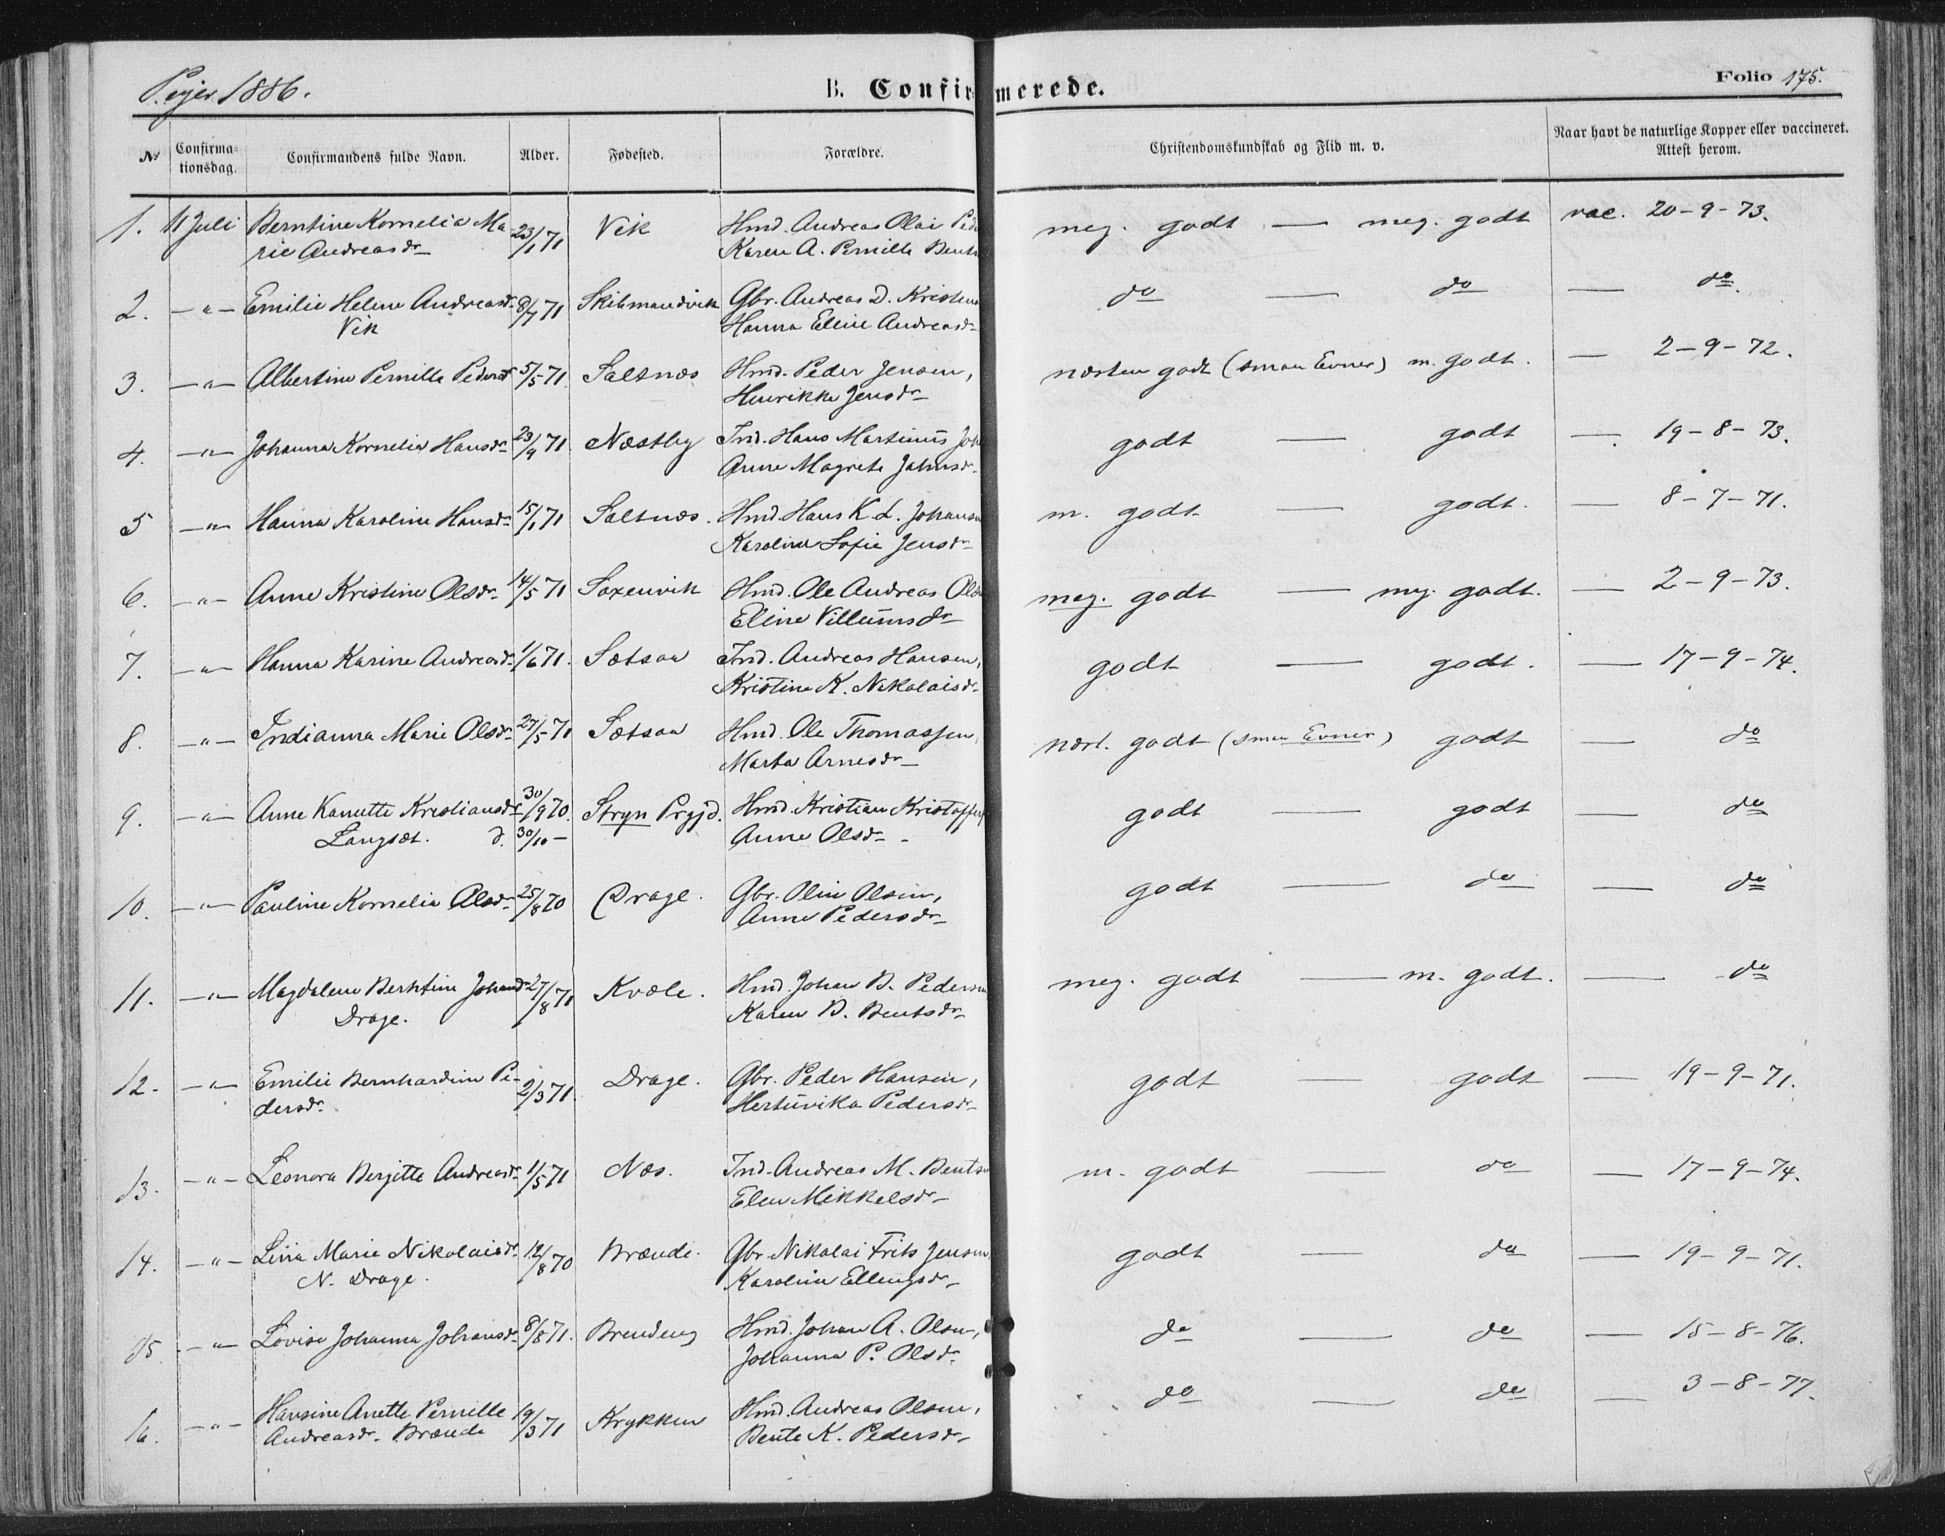 Piger 1886.
B. Confirmerede.
Folio 175.
No
Confirma-
tionsdag.
Confirmandens fulde Navn.
Alder.
Fødested.
Forældre.
Christendomskundskab og Flid m. v.
Naar havt de naturlige Kopper eller vaccineret.
Attest herom.
1. 11 Juli Berntine Kornelia Ma- 23/1 71 Vik Hmd. Andreas Olai meg. godt — meg. godt vac. 20-9-73.
rie Andreasdr Karen A. Pernille
2. — " — Emilie Helene Andreasdr 8/7 71 Skibmandvik Gbr. Andreas D. do — do — do.
Vik Hanna Eline Andreasdr
3. — " — Albertine Pernille Pedersdr 5/5 71 Saltnæs Hmd. Peder Jensen, næsten godt (smaa Evner) m. godt. — 2-9-72.
Henrikke Jensdr
4. — " — Johanna Kornelia Hansdr 23/9 71 Næstby Ind. Hans Martinus godt — godt — 19-8-73.
Anne Magrete Johnsdr
5 — " — Hanna Karoline Hansdr 15/1 71 Saltnæs. Hmd. Hans K. L. Johansen m. godt — godt. — 8-7-71.
Karoline Sofie Jensdr
6. — " — Anne Kristine Olsdr 14/5 71 Saxenvik Hmd. Ole Andreas meg. godt — meg. godt. — 2-9-73.
Eline Villumsdr
7. — " — Hanna Karine Andreasdr 1/6 71. Sætsaa Ind. Andreas Hansen, godt — godt. — 17-9-74.
Kristine K. Nikolaisdr
8. — " — Indianna Marie Olsdr 27/5 71 Sætsaa Hmd. Ole Thomassen, næst. godt (smaa Evner) godt — do
Marta Arnesdr
9. — " — Anne Kanutte Kristiansdr 30/9 70. Stryn Prgjd. Hmd. Kristian godt — godt — do
Langsæt. d. 30/10 — Anne Olsdr
10. — " — Pauline Kornelia Olsdr 25/8 70 Drage. Gbr. Olin Olsen, godt — do — do
Anne Pedersdr
11. — " — Magdalene Berntine Johansdr 27/8 71 Kvæle. Hmd. Johan B. Pedersen meg. godt — m. godt. — do
Drage. Karen B. Bentsdr
12. — " — Emilie Bernhardine Pe- 2/3 71 Drage. Gbr. Peder Hansen, godt — godt — 19-9-71.
dersdr Hertuvika Pedersdr
13. — " — Leonora Bergitte Andreasdr 1/5 71 Næs. Ind. Andreas M. m. godt — do — 17-9-74.
Elen Mikkelsdr
14. — " — Lina Marie Nikolaisdr 12/8 70 Brænde. Gbr. Nikolai Frits Jensen godt — do — 19-9-71.
N. Drage. Karoline Ellingsdr
15. — " — Lovise Johanna Johansdr 8/8 71. Brendeng Hmd. Johan A. Olsen, do — do — 15-8-76.
Johanna P. Olsdr
16. — " — Hansine Anette Pernille 19/3 71 Krykken Hmd. Andreas Olsen, do — do — 3-8-77.
Andreasdr Brænde Bente K. Pedersdr